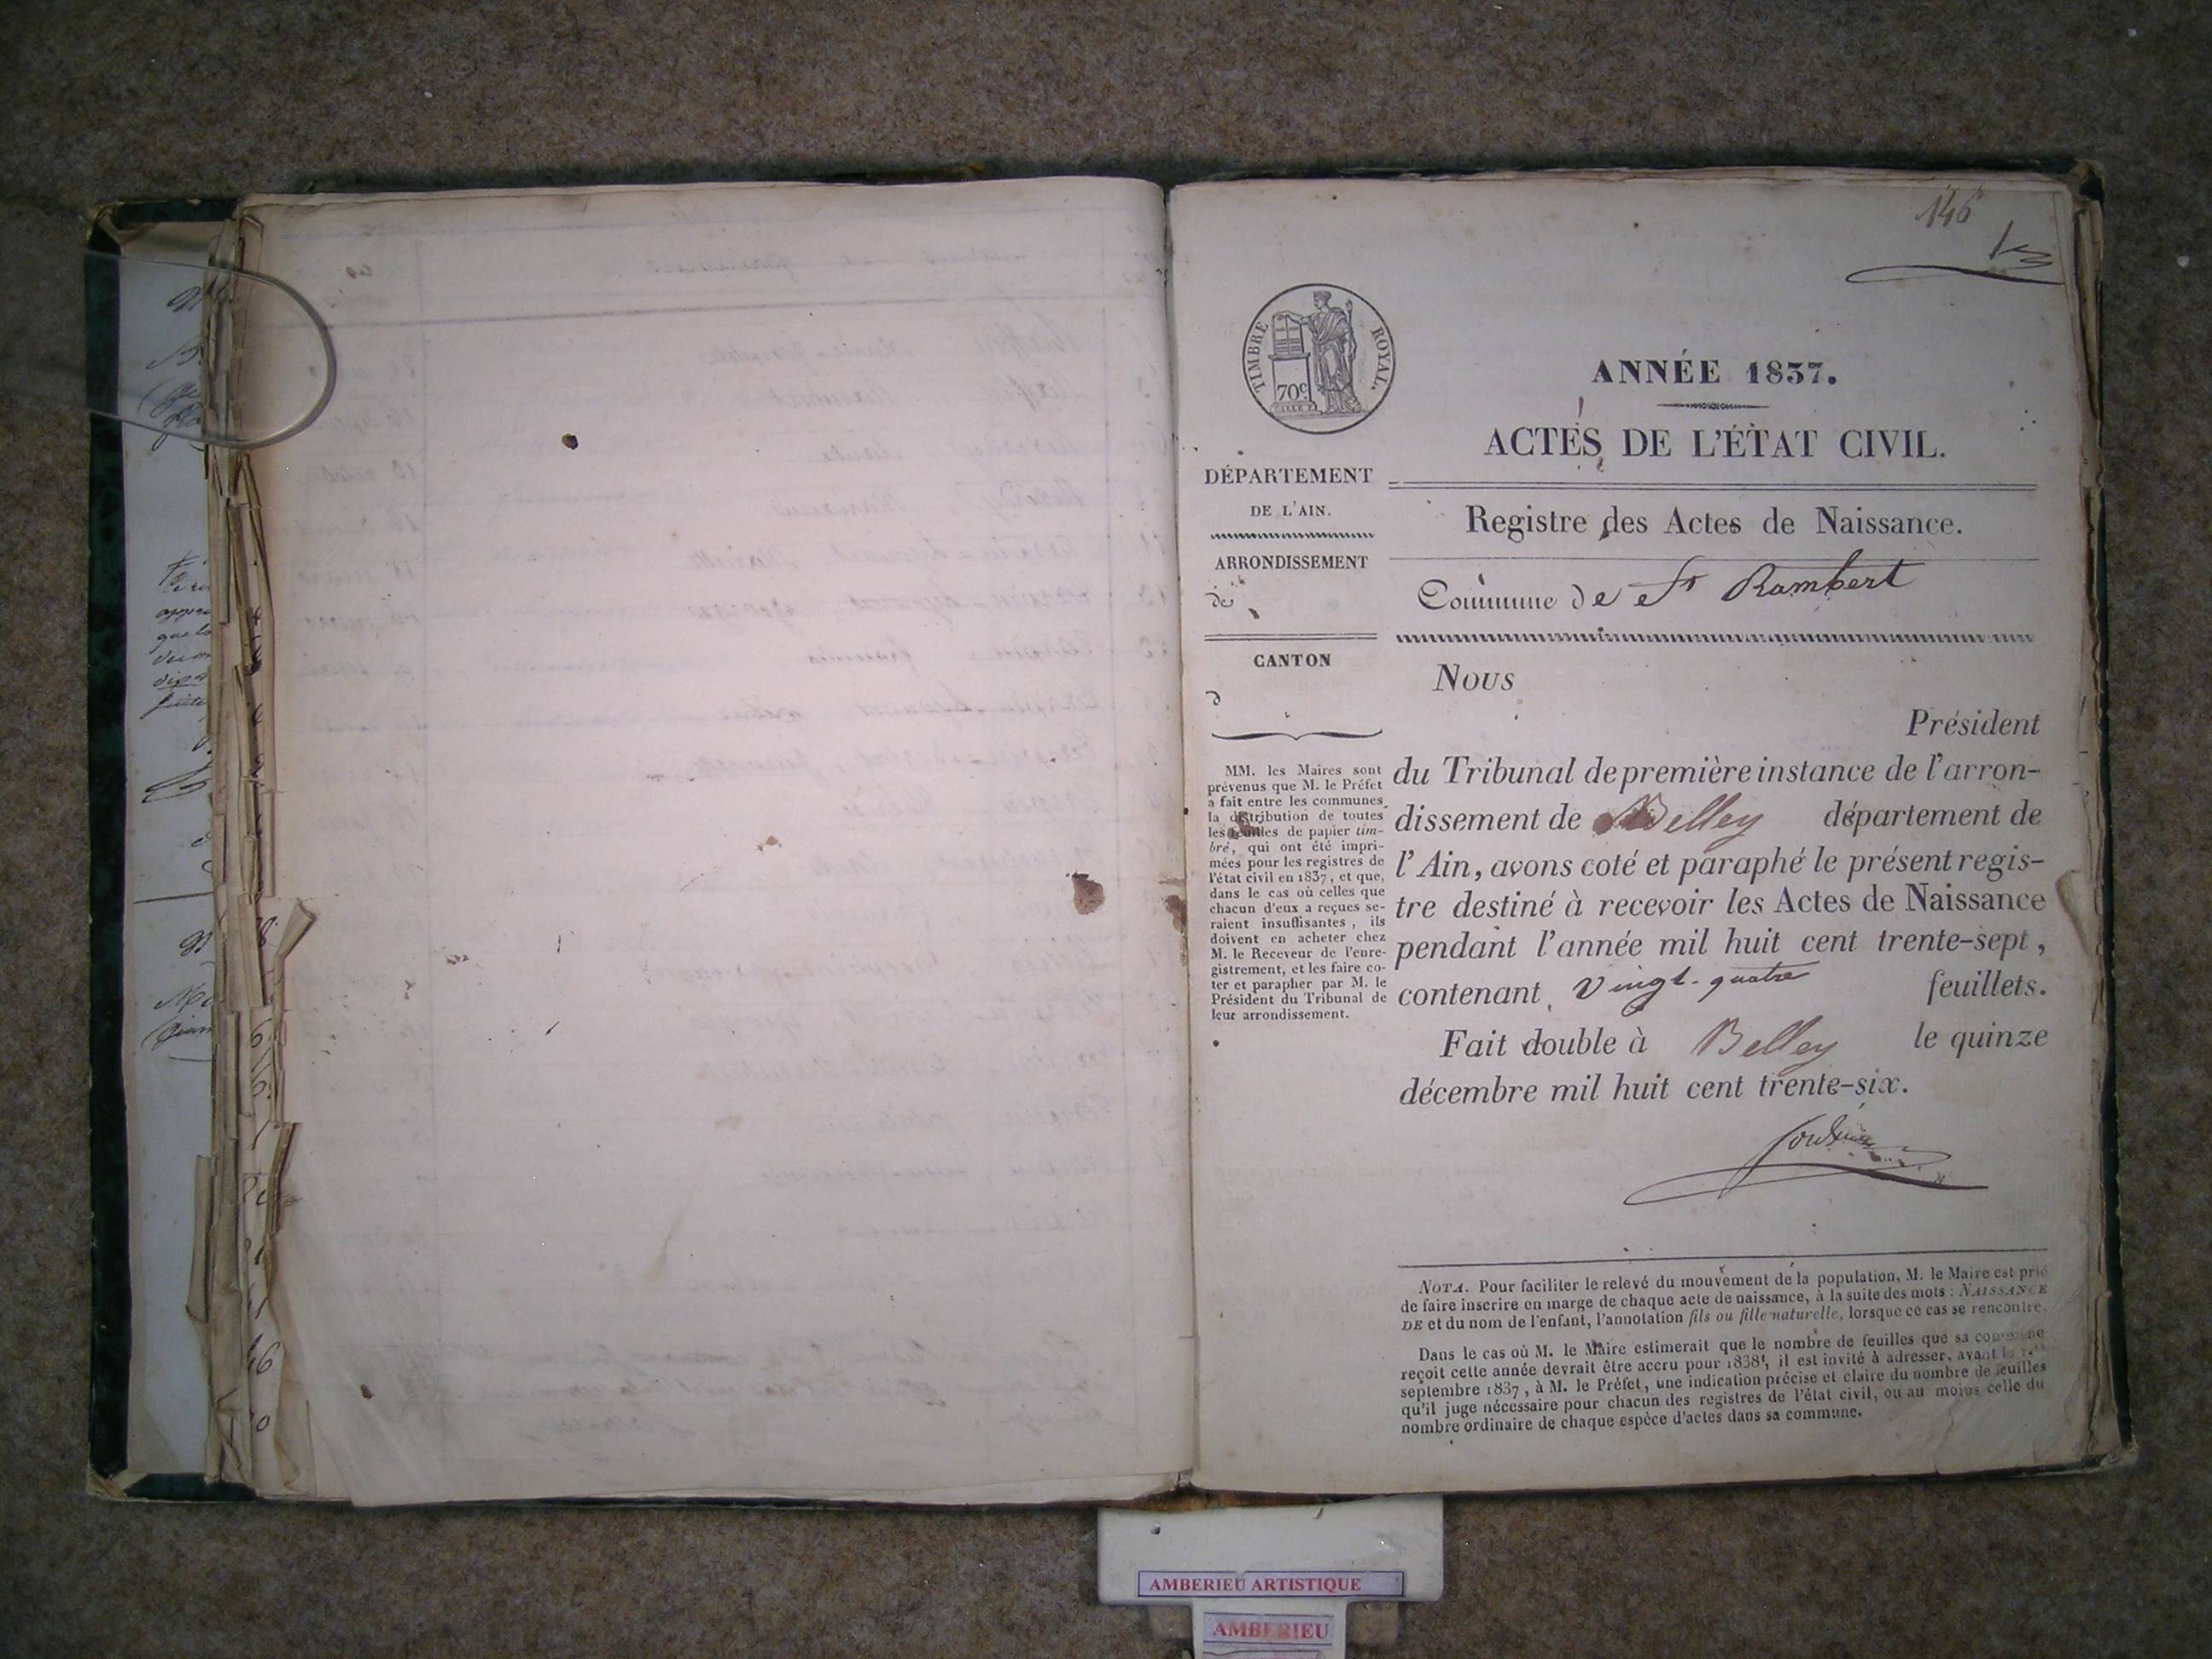 146
TIMBRE ROYAL.
70c
ANNÉE 1837.
ACTES DE L'ÉTAT CIVIL.
Registre des Actes de Naissance.
Commune de St Rambert
DÉPARTEMENT
DE L'AIN.
ARRONDISSEMENT
de
CANTON
d
MM. les Maires sont
prévenus que M. le Préfet
a fait entre les communes
la distribution de toutes
les feuilles de papier tim-
bré, qui ont été impri-
mées pour les registres de
l'état civil en 1837, et que,
dans le cas où celles que
chacun d'eux a reçues se-
raient insuffisantes, ils
doivent en acheter chez
M. le Receveur de l'enre-
gistrement, et les faire co-
ter et parapher par M. le
Président du Tribunal de
leur arrondissement.
Nous
Président
du Tribunal de première instance de l'arron-
dissement de Belley département de
l'Ain, avons coté et paraphé le présent regis-
tre destiné à recevoir les Actes de Naissance
pendant l'année mil huit cent trente-sept,
contenant vingt-quatre feuillets.
Fait double à Belley le quinze
décembre mil huit cent trente-six.
NOTA. Pour faciliter le relevé du mouvement de la population, M. le Maire est prié
de faire inscrire en marge de chaque acte de naissance, à la suite des mots : NAISSANCE
DE et du nom de l'enfant, l'annotation fils ou fille naturelle, lorsque ce cas se rencontre.
Dans le cas où M. le Maire estimerait que le nombre de feuilles que sa commune
reçoit cette année devrait être accru pour 1838, il est invité à adresser, avant le 1er
septembre 1837, à M. le Préfet, une indication précise et claire du nombre de feuilles
qu'il juge nécessaire pour chacun des registres de l'état civil, ou au moins celle du
nombre ordinaire de chaque espèce d'actes dans sa commune.
AMBERIEU ARTISTIQUE
AMBERIEU